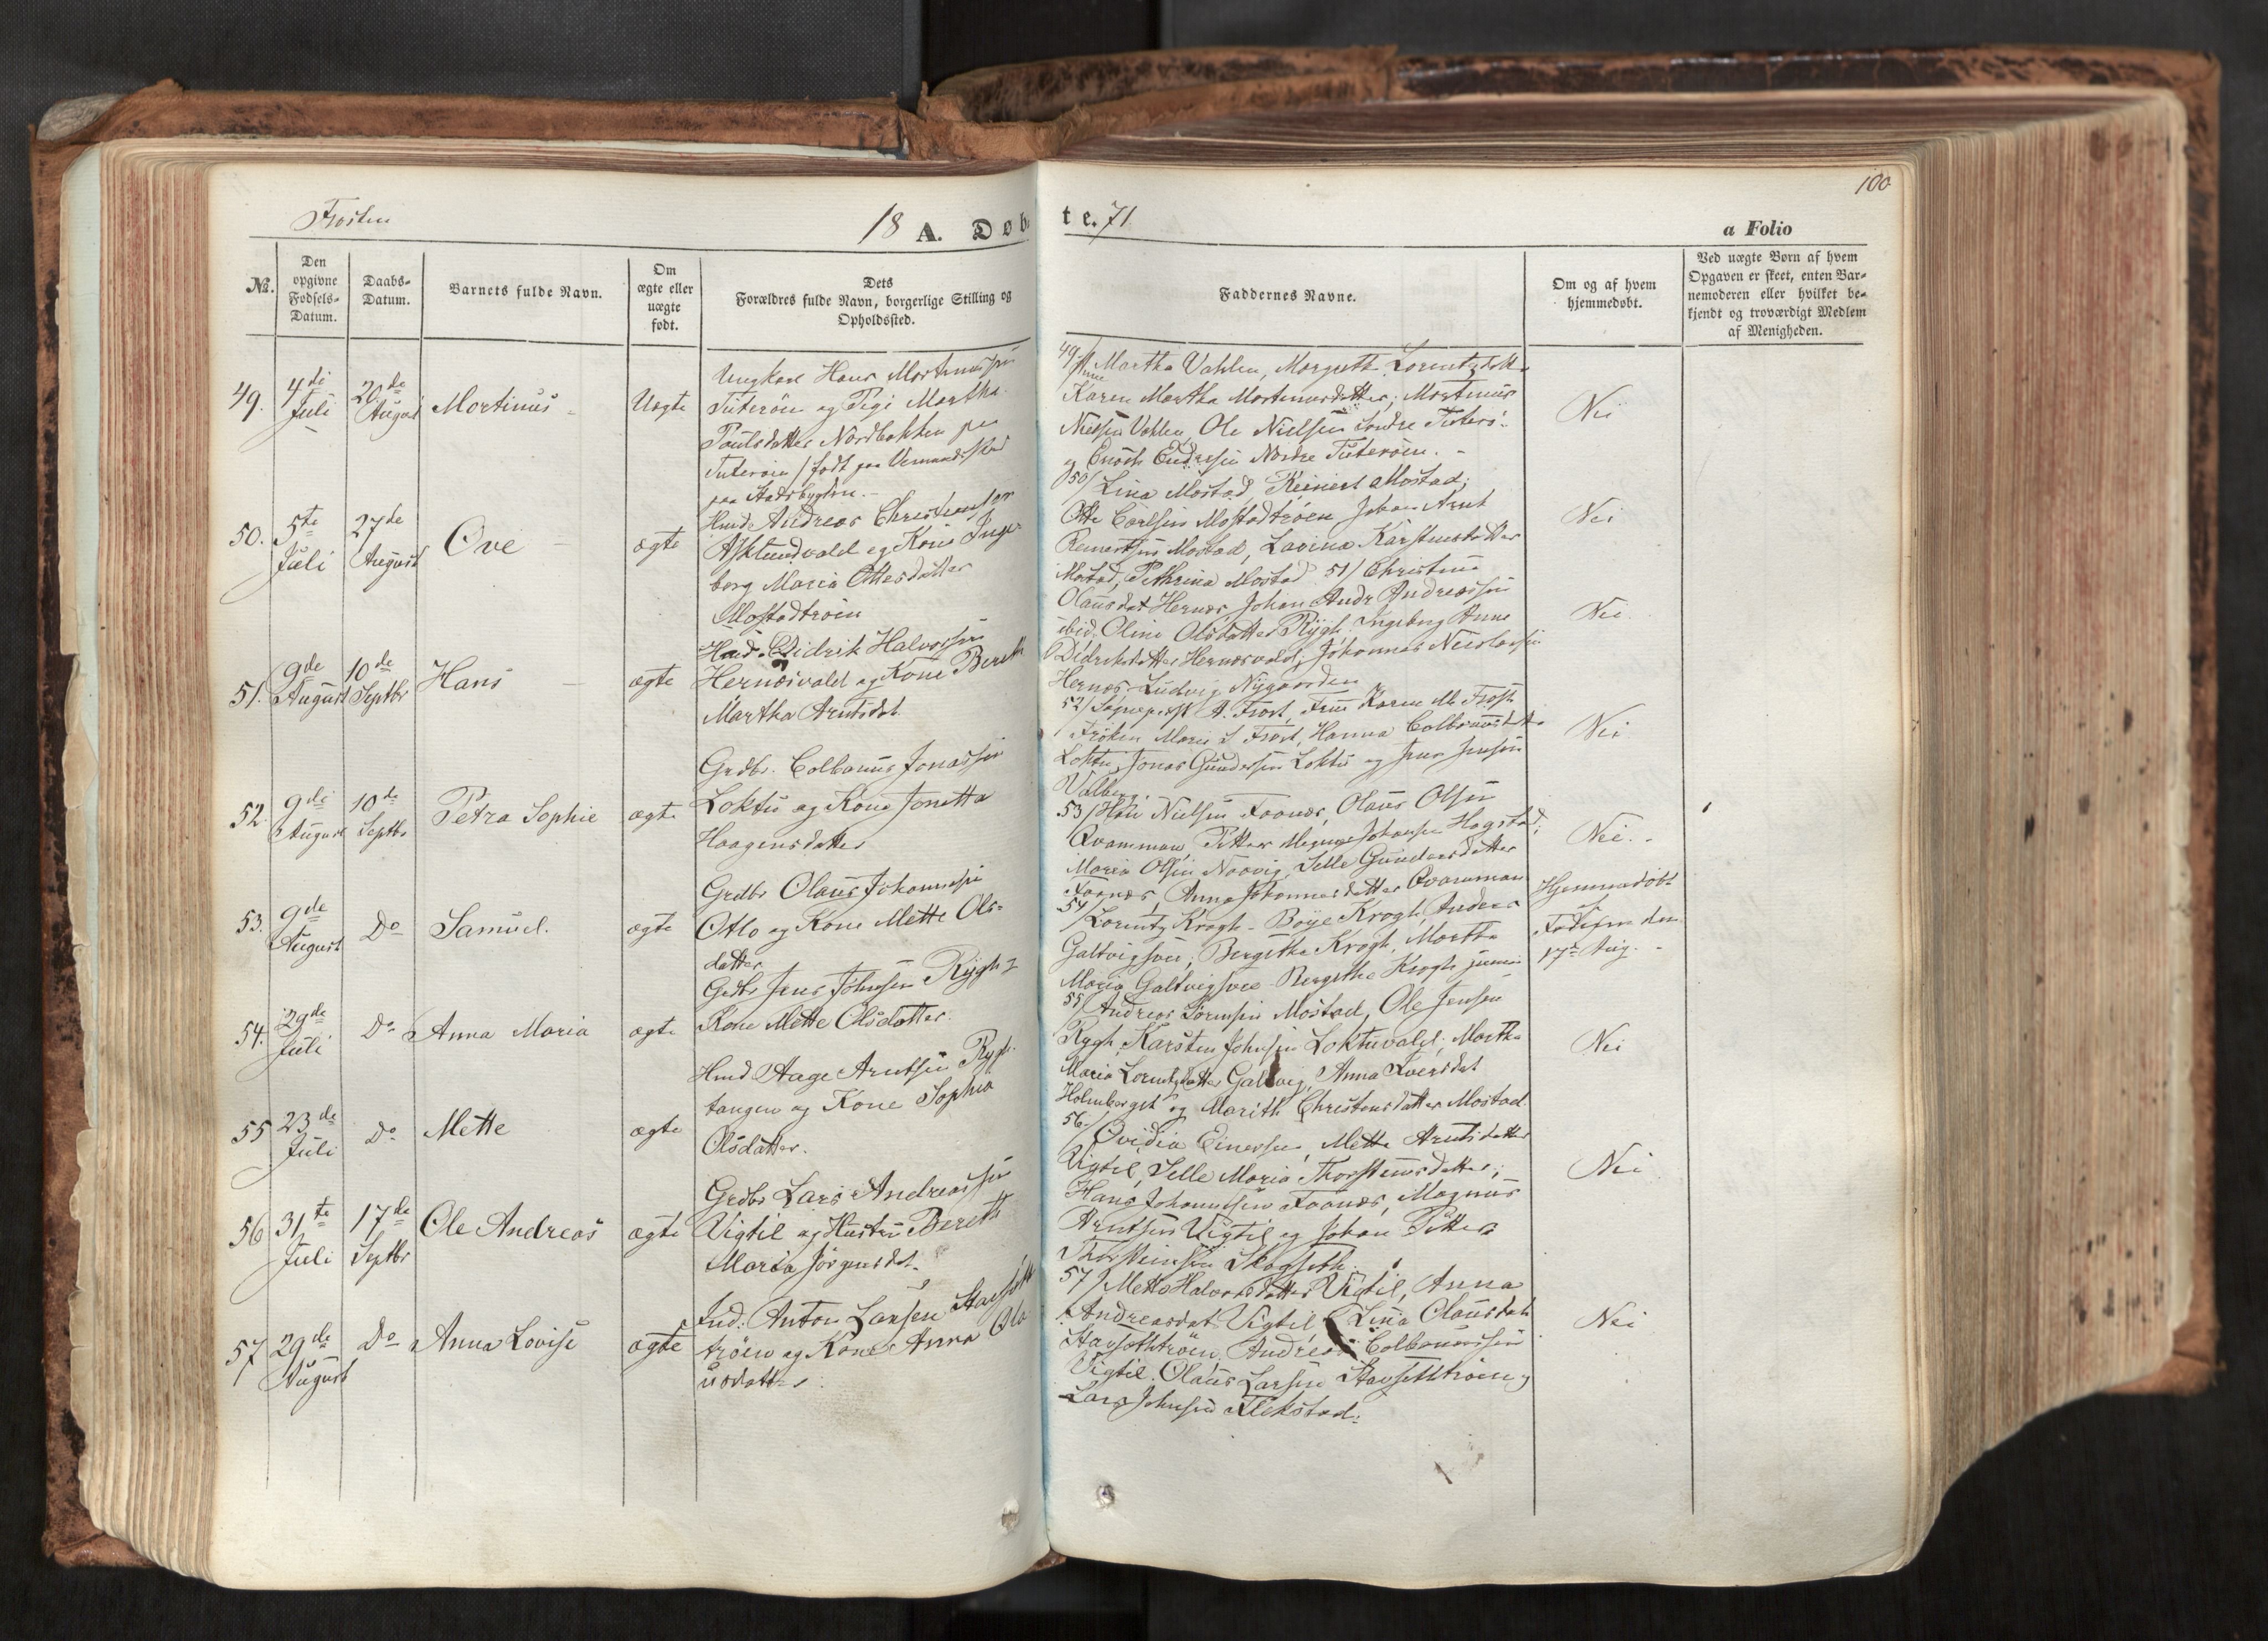 Frosten
18 A. Døb
№.
Den
opgivne
Fødsels-
Datum.
Daabs-
Datum.
Barnets fulde Navn.
Om
ægte eller
uægte
født.
Dets
Forældres fulde Navn, borgerlige Stilling og
Opholdssted.
49. 4de Juli 20de August Mortinus Uægte
Ungkarl Hans Mortinussen
Tuterøen og Pige Martha
Poulsdatter Nordbakken paa
Tuterøen / født paa
paa Stadsbygden.
50. 5te Juli 27de August Ove ægte
Hmd Andreas Christensen
Asklundvald og Kone Inge-
borg Maria Ottesdatter
Mostadtrøen
51. 9de August 10de Septbr Hans ægte
Hmd. Didrik Halvorsen
Hernæsvald og Kone Bereth
Martha Arntsdat.
52. 9de August 10de Septbr Petra Sophie ægte
Grdbr. Colbanus Jonassen
Loktu og Kone Jonetta
Haagensdatter
53. 9de August Do Samuel. ægte
Grdbr Olaus Johannesen
Otlo og Kone Mette Ols-
datter
54. 29de Juli Do Anna Maria ægte
Grdbr Jens Johnsen Rygh &
Kone Mette Olsdatter.
55 23de Juli Do Mette ægte
Hmd Aage Arntsen Rygh-
tangen og Kone Sophia
Olsdatter.
56 31te Juli 17de Septbr Ole Andreas ægte
Grdbr Lars Andreassen
Vigtil og Hustru Bereth
Maria Jørgensdat.
57 29de August Do Anna Lovise ægte
Ind. Anton Larsen Havseth
trøen og Kone Anna Ola
usdatter
100
te. 71
a Folio
Faddernes Navne.
Om og af hvem
hjemmedøbt.
Ved uægte Børn af hvem
Opgaven er skeet, enten Bar-
nemoderen eller hvilket be-
kjendt og troværdigt Medlem
af Menigheden.
49/ Martha Vahlen, Margreth Lorentzdatt.
Karen Martha Mortinusdatter; Mortinus
Nielsen Vahlen, Ole Nielsen Søndre Tuterø.
og Enoch Endresen Nordre Tuterøen.
Nei
50/ Lina Mostad, Reinert Mostad;
Otte Carlsen Mostadtrøen Johan Arnt
Reinertsen Mostad, Lavina Karstensdatter
Mostad, Pethrina Mostad 51/ Christina
Nei
Olausdat Hernæs, Johan Andr Andreassen
ibid. Oline Olsdatter Rygh. Ingeborg Anna
Didriksdatter Hernæsvald; Johannes Nicolaysen
Hernæs Ludvig Nygaarden
Nei.
52/ Sogneprest A. Frost, Frue Karen M. Frost
Frøken Maria S Frost, Hanna Colbanusdatter
Loktu, Jonas Gundersen Loktu og Jens Jensen
Valberg.
Nei
53/ Hans Nielsen Faanes, Olaus Olsen
Qvamman, Petter Magnus Johansen Hogstad;
Maria Olsen Naavig, Selle Gundersdatter
Faanes, Anna Johannesdatter Qvamman
Nei.
54/ Lorentz Krogh - Boye Krogh, Anders
Galtvigsvee, Bergithe Krogh, Martha
Maria Galtvigsvee Bergithe Krogh junior
Hjemmedøbt
af
Faderen den
17de Aug.
55/ Andreas Sørensen Mostad, Ole Jensen
Rygh, Karsten Johnsen Loktuvald. Martha
Maria Lorentzdatter Galtvig, Anna Iversdat
Holmberget og Marith Christensdatter Mostad
Nei
56/ Ovidia Einersen, Mette Arntsdatter
Vigtil, Selle Maria Thorsteinsdatter;
Hans Johannesen Faanes, Magnus
Arntsen Vigtil og Johan Petter
Thorsteinsen Skogseth.
Nei
57/ Mette Halvorsdatter Vigtil, Anna
Andreasdat Vigtil Lina Olausdat
Havseththrøen, Andreas Colbanussen
Vigtil. Olaus Larsen Havsethtrøen og
Lars Johnsen Flekstad.
Nei